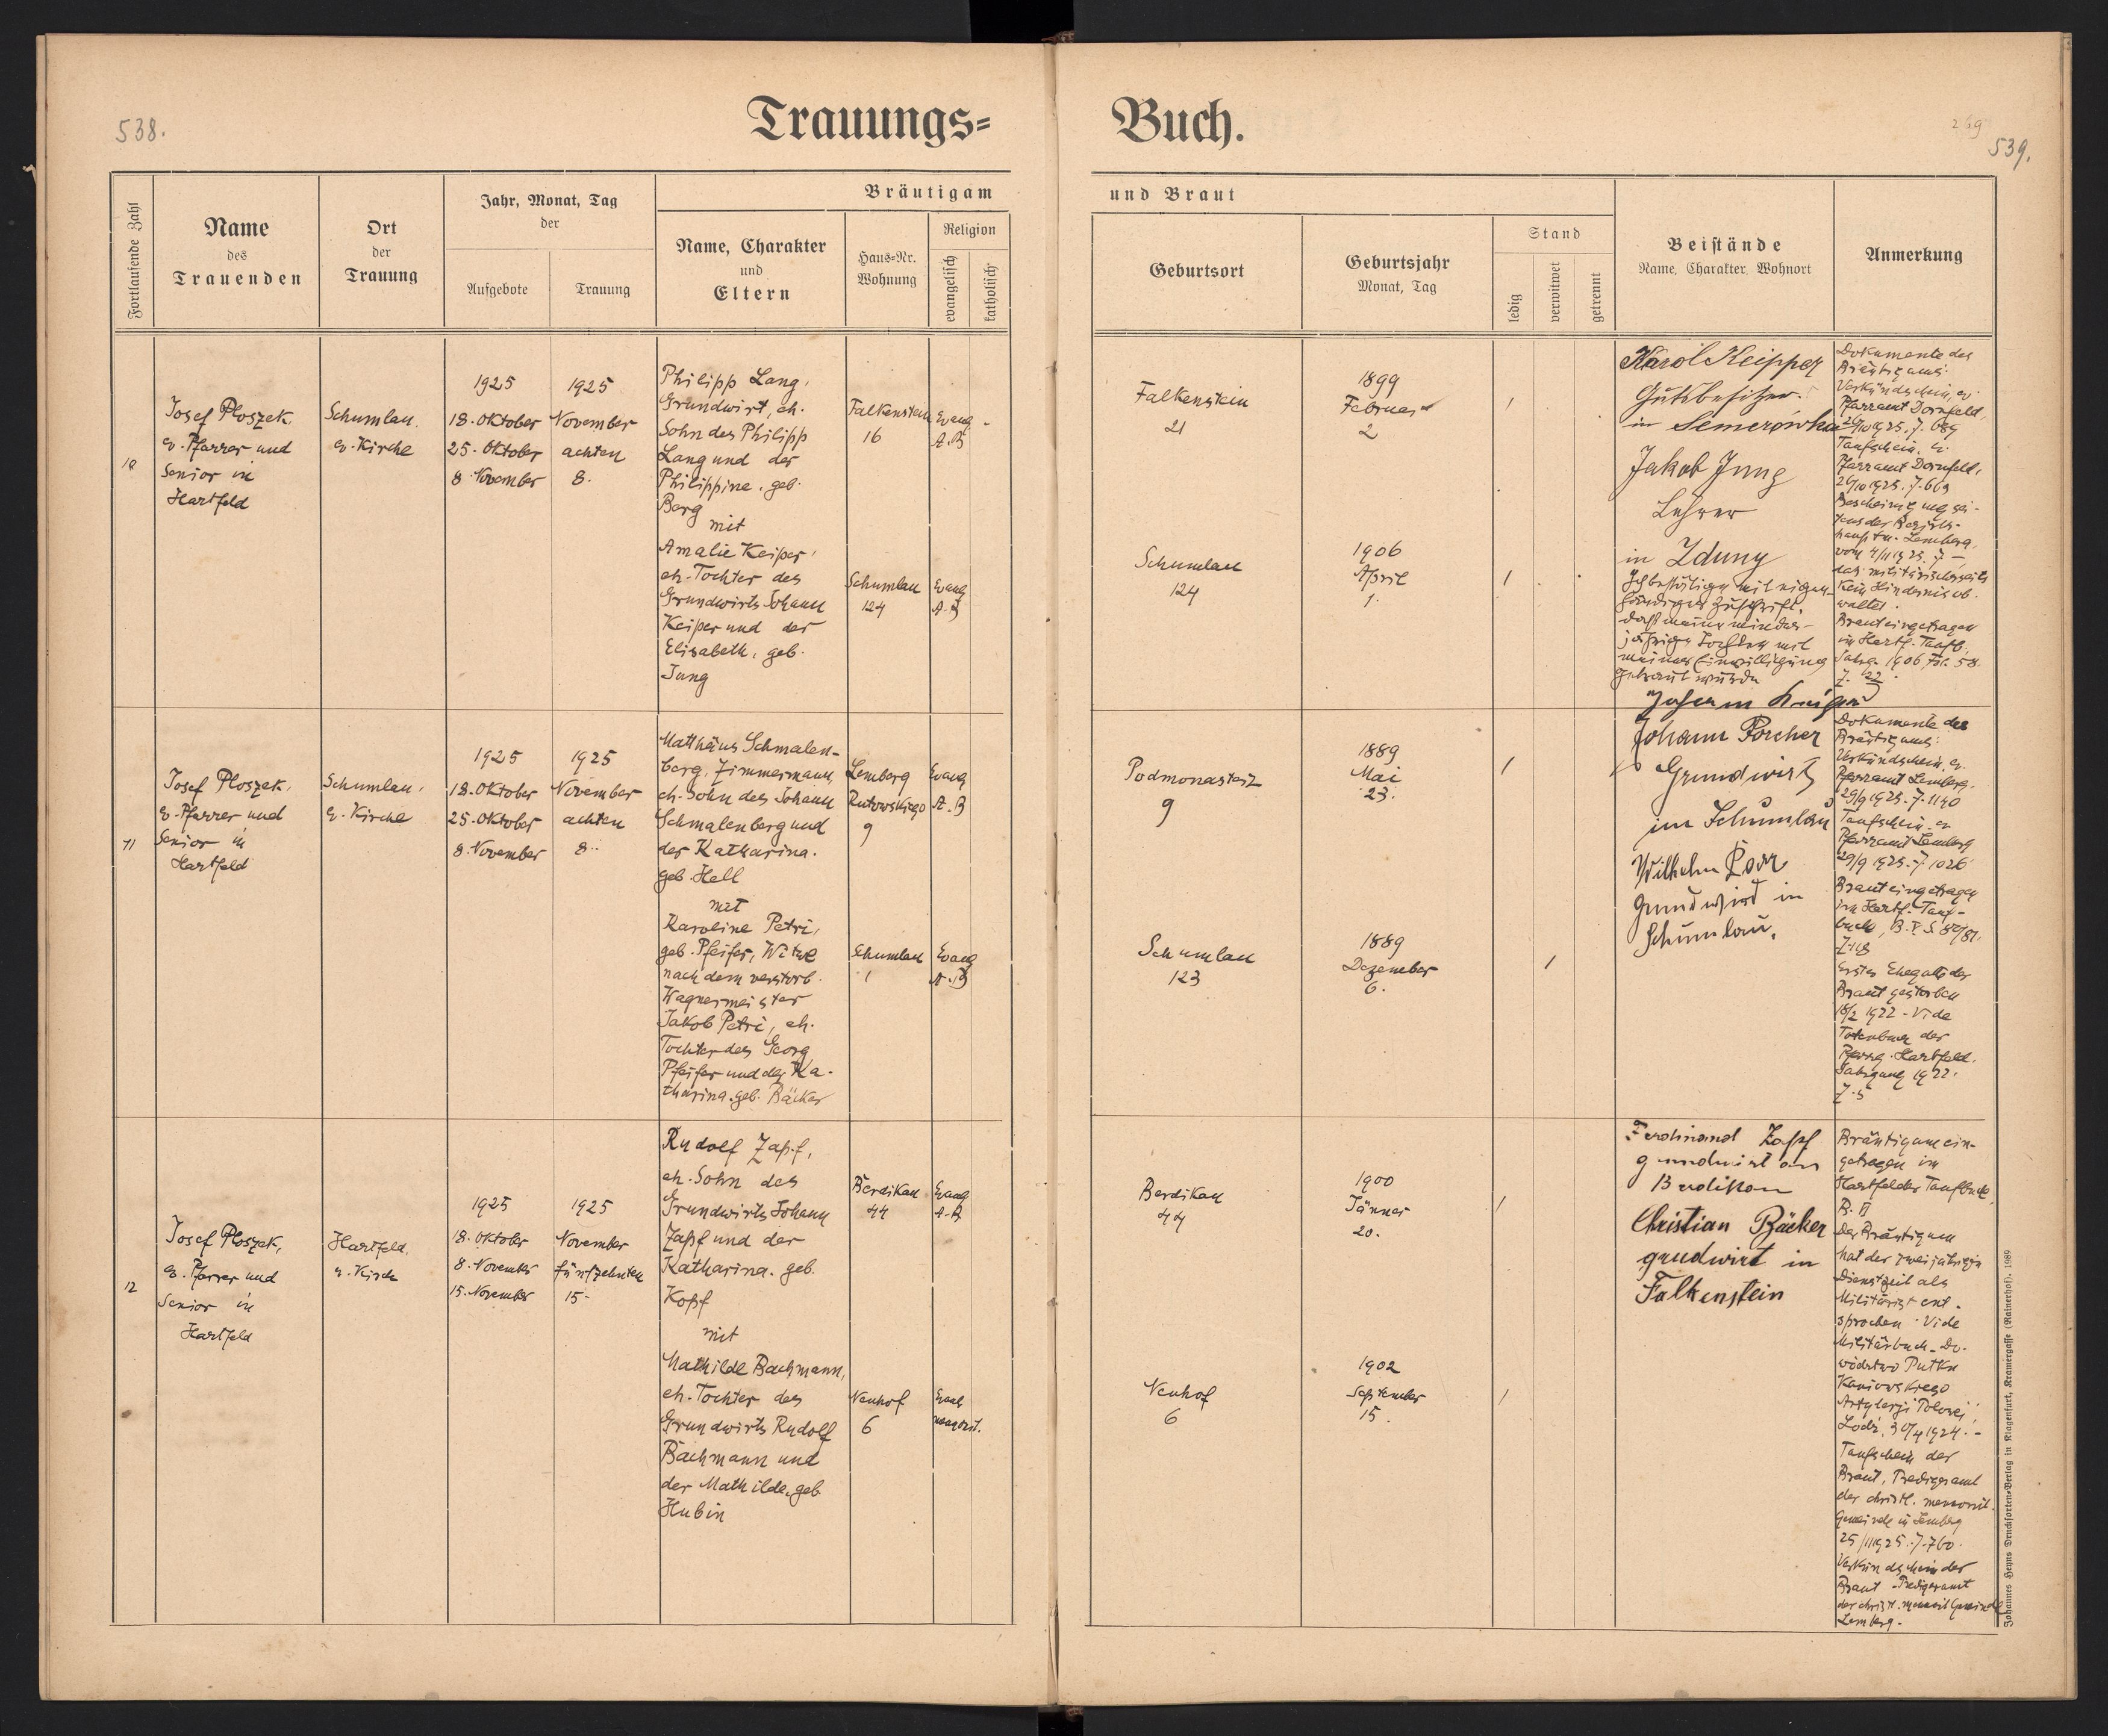 538.
Trauungs=
Fortlaufende Zahl
Name
des
Trauenden
Ort
der
Trauung
Jahr, Monat, Tag
der
Aufgebote
Trauung
Bräutigam
Name, Charakter
und
Eltern
Haus=Nr.
Wohnung
Religion
evangelisch
katholisch
10
Josef Ploszek,
ev. Pfarrer und
Senior in
Hartfeld
Schumlau.
ev. Kirche
1925
18. Oktober
25. Oktober
8. November
1925
November
achten
8.
Philipp Lang,
Grundwirt, eh.
Sohn des Philipp
Lang und der
Philippine, geb.
Berg
mit
Amalie Keiper,
eh. Tochter des
Grundwirts Johann
Keiper und der
Elisabeth, geb.
Jung
Falkenstein
16
Evang.
A.B
Schumlau
124
Evang
A.B
11
Josef Ploszek,
ev. Pfarrer und
Senior in
Hartfeld
Schumlau.
ev. Kirche
1925
18. Oktober
25. Oktober
8. November
1925
November
achten
8.
Matthäus Schmalen-
berg, Zimmermann,
eh. Sohn des Johann
Schmalenberg und
der Katharina.
geb. Hell
mit
Karoline Petri,
geb. Pfeifer, Witwe
nach dem verstorb.
Wagnermeister
Jakob Petri, eh.
Tochter des Georg
Pfeifer und der Ka-
tharina. geb. Bäcker
Lemberg
Rutowskiego
9
Evang
A.B
Schumlau
1
Evang
A.B
12
Josef Ploszek,
ev. Pfarrer und
Senior in
Hartfeld
Hartfeld.
ev. Kirche
1925
18. Oktober
8. November
15. November
1925
November
fünfzehnten
15.
Rudolf Zapf,
eh. Sohn des
Grundwirts Johann
Zapf und der
Katharina. geb.
Kopf
mit
Mathilde Bachmann,
eh. Tochter des
Grundwirts Rudolf
Bachmann und
der Mathilde, geb.
Hubin
Berdikau
44
Evang
A.B
Neuhof
6
Buch.
269
539.
und Braut
Geburtsort
Geburtsjahr
Monat, Tag
Stand
ledig
verwitwet
getrennt
Beistände
Name, Charakter, Wohnort
Anmerkung
Falkenstein
21
1899
Februar
2
Schumlau
124
1906
April
1.
Karol Keipper
Gutsbesitzer
in Semerówka
Jakob Jung
Lehrer
in Zduny
Ich bestätige mit eigen-
händiger Zuschrift,
daß meine minder-
jährige Tochter mit
meiner Einwilligung
getraut wurde
Dokumente des
Bräutigams:
Verkündschein, ev.
Pfarramt Dornfeld,
1925, Z. 689
Taufschein, ev.
Pfarramt Dornfeld,
26/10 1925. Z. 663
Bescheinigung sei-
tens der Bezirks-
hauptm. Lemberg,
vom 4/11 1925. Z. —
das militärischerseits
kein Hindernis ob-
waltet.
Braut eingetragen
im Hartf. Taufb.
Jahrg. 1906 Fol. 58
Z. 22.
Podmonasterz
9
1889
Mai
23.
Schumlau
123
1889
Dezember
6.
Johann Porcher
Grundwirt
in Schumlau
Wilhelm Poor
Grundwirt in
Schumlau.
Dokumente des
Bräutigams:
Verkündschein, ev.
Pfarramt Lemberg.
29/9 1925. Z. 1140
Taufschein. ev
Pfarramt Lemberg
29/9 1925. Z. 1026
Braut eingetragen
im Hartf. Tauf-
Erster Ehegatte der
Braut gestorben
18/2 1922 - Vide
Totenbuch der
Hartfeld.
Jahrgang 1922.
Z. 5
Berdikau
44
1900
Jänner
20.
Neuhof
6
1902
September
15.
Ferdinand Zapf
grundwirt in
Berdikau
Christian Bäcker
grudwirt in
Falkenstein
Bräutigam ein-
getragen im
Hartfelder Taufbuch,
B. II
Der Bräutigam
hat der zweijährigen
Dienstzeit als
Militärist ent-
sprochen. Vide
Militärbuch - Do-
wództwo Pułku
Kaniowskiego
Artylerji Polowej,
Łódź, 30/4 1924. -
Taufschein der
Braut, Predigeramt
der christl. mennonit.
Gemeinde in Lemberg
25/11 1925. Z. 760.
Verkündschein der
Braut - Predigeramt
der christl. mennonit Gemeinde
Lemberg.
Johannes Heyns Drucksorten=Verlag in Klagenfurt, Kramergasse (Rainerhof). 1989